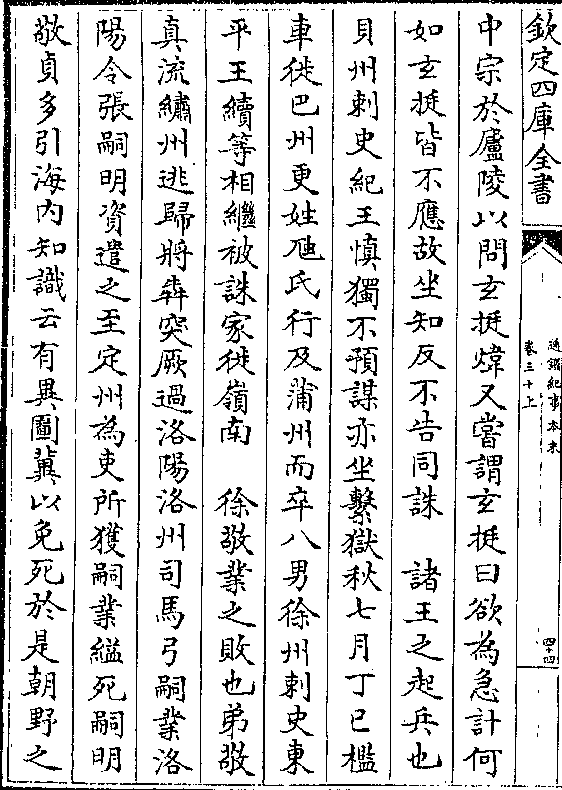 欽定四庫全書
通鑑紀事本末
卷三十上
四十四
中宗於廬陵以問玄挺煒又嘗謂玄挺曰欲為急計何
如玄挺皆不應故坐知反不告同誅　諸王之起兵也
貝州刺史紀王慎獨不預謀亦坐繫獄秋七月丁巳檻
車徙巴州更姓虺氏行及蒲州而卒八男徐州刺史東
平王續等相繼被誅家徙嶺南　徐敬業之敗也弟敬
真流繡州逃歸將犇突厥過洛陽洛州司馬弓嗣業洛
陽令張嗣明資遣之至定州為吏所獲嗣業縊死嗣明
敬貞多引海内知識云有異圖冀以免死於是朝野之